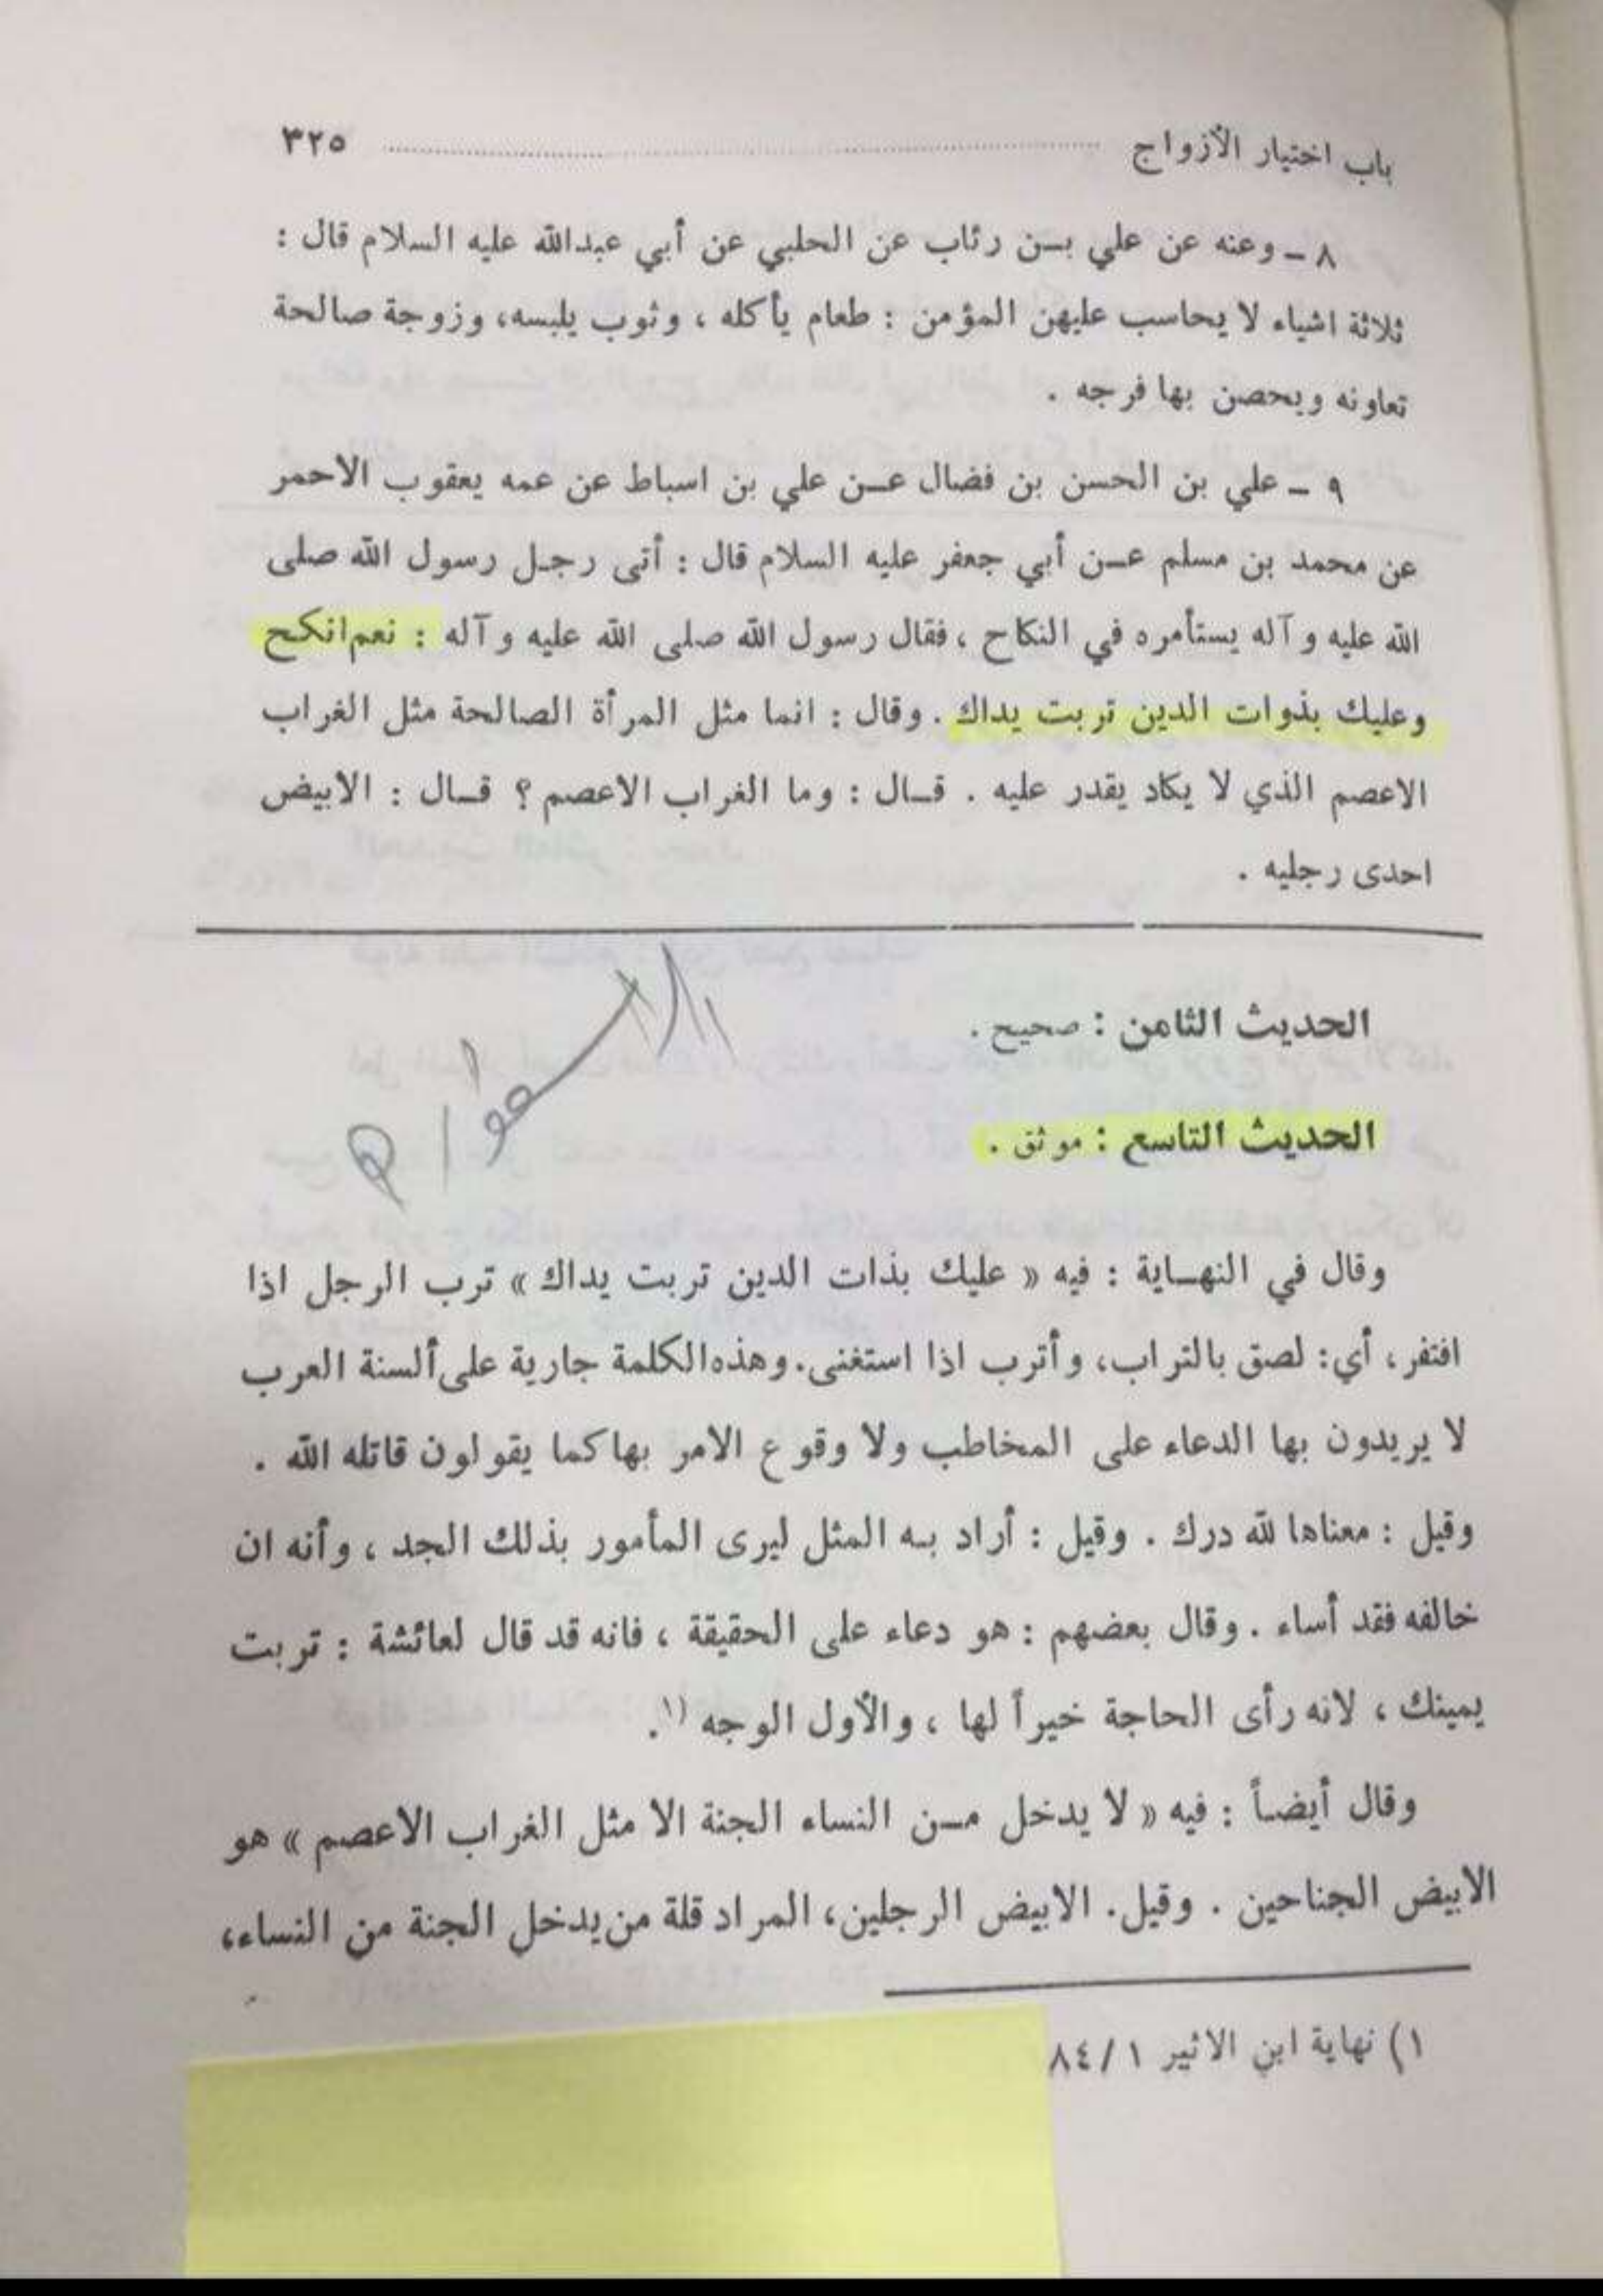 باب اختيار الأزواج ........................................ ٣٢٥
٨ ــ وعنه عن علي بــن رئاب عن الحلبي عن أبي عبدالله عليه السلام قال :
ثلاثة اشياء لا يحاسب عليهن المؤمن : طعام يأكله ، وثوب يلبسه، وزوجة صالحة
تعاونه ويحصن بها فرجه .
٩ ــ علي بن الحسن بن فضال عــن علي بن اسباط عن عمه يعقوب الاحمر
عن محمد بن مسلم عــن أبي جعفر عليه السلام قال : أتى رجل رسول الله صلى
الله عليه وآله يستأمره في النكاح ، فقال رسول الله صلى الله عليه وآله : نعم انكح
وعليك بذوات الدين تربت يداك . وقال : انما مثل المرأة الصالحة مثل الغراب
الاعصم الذي لا يكاد يقدر عليه . قــال : وما الغراب الاعصم ؟ قــال : الابيض
احدى رجليه .
الحديث الثامن : صحيح .
الحديث التاسع : موثق .
وقال في النهــاية : فيه « عليك بذات الدين تربت يداك » ترب الرجل اذا
افتقر ، أي: لصق بالتراب، وأترب اذا استغنى. وهذه الكلمة جارية على ألسنة العرب
لا يريدون بها الدعاء على المخاطب ولا وقوع الامر بها كما يقولون قاتله الله .
وقيل : معناها لله درك . وقيل : أراد بــه المثل ليرى المأمور بذلك الجد ، وأنه ان
خالفه فقد أساء . وقال بعضهم : هو دعاء على الحقيقة ، فانه قد قال لعائشة : تربت
يمينك ، لانه رأى الحاجة خيراً لها ، والأول الوجه ١).
وقال أيضــاً : فيه « لا يدخل مــن النساء الجنة الا مثل الغراب الاعصم » هو
الابيض الجناحين . وقيل. الابيض الرجلين، المراد قلة من يدخل الجنة من النساء،
١) نهاية ابن الاثير ١ / ٨٤